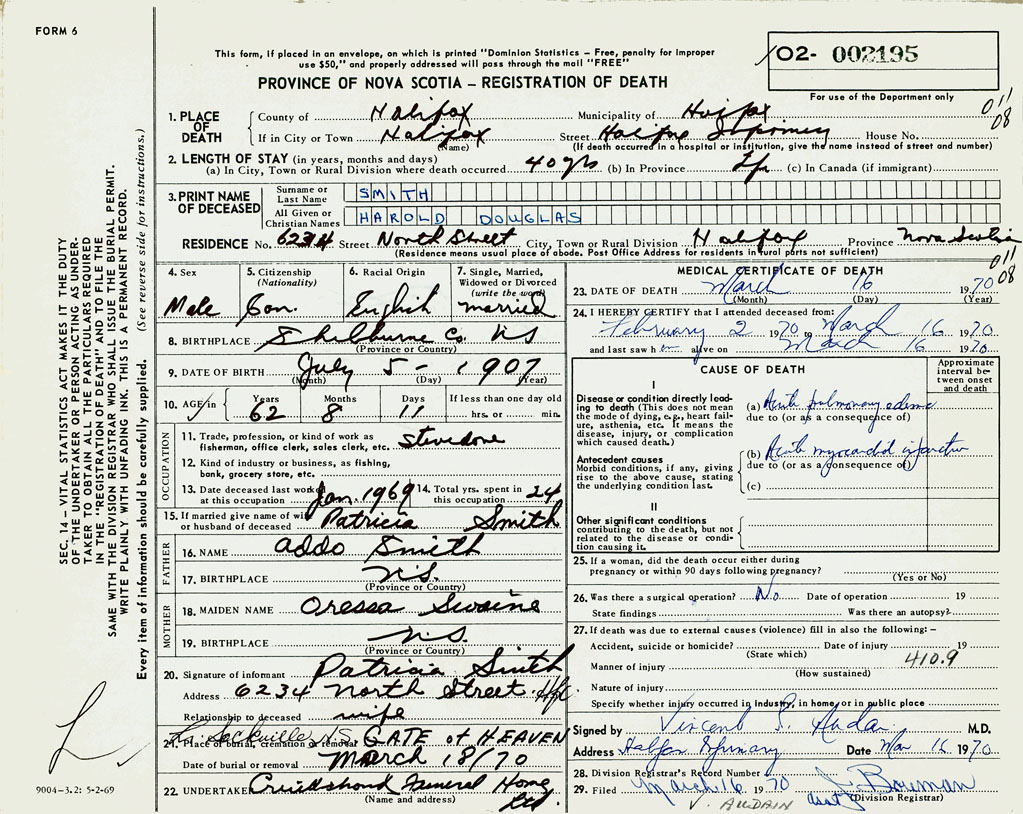 FORM 6
This form, if placed in an envelope, on which is printed "Dominion Statistics – Free, penalty for improper
use $50," and properly addressed will pass through the mail "FREE"
PROVINCE OF NOVA SCOTIA – REGISTRATION OF DEATH
02- 002195
For use of the Department only
011
08
1. PLACE OF DEATH
County of Halifax Municipality of Halifax
If in City or Town Halifax Street Halifax Infirmary House No.
(Name) (If death occurred in a hospital or institution, give the name instead of street and number)
2. LENGTH OF STAY (in years, months and days)
(a) In City, Town or Rural Division where death occurred 40 yrs (b) In Province (c) In Canada (if immigrant)
3. PRINT NAME OF DECEASED
Surname or Last Name SMITH
All Given or Christian Names HAROLD DOUGLAS
RESIDENCE No. 6234 Street North Street City, Town or Rural Division Halifax Province Nova Scotia
(Residence means usual place of abode. Post Office Address for residents in rural parts not sufficient)
011
08
4. Sex
Male
5. Citizenship (Nationality)
Can.
6. Racial Origin
English
7. Single, Married, Widowed or Divorced (write the word)
married
8. BIRTHPLACE Shelburne Co. NS
(Province or Country)
9. DATE OF BIRTH July 5 - 1907
(Month) (Day) (Year)
10. AGE in Years Months Days If less than one day old
62 8 11 hrs. or min.
OCCUPATION
11. Trade, profession, or kind of work as
fisherman, office clerk, sales clerk, etc. Stevedore
12. Kind of industry or business, as fishing,
bank, grocery store, etc.
13. Date deceased last worked at this occupation Jan. 1969 14. Total yrs. spent in this occupation 24
15. If married give name of wife
or husband of deceased Patricia Smith
FATHER
16. NAME Addo Smith
17. BIRTHPLACE N.S.
(Province or Country)
MOTHER
18. MAIDEN NAME Oressa Swaine
19. BIRTHPLACE N.S.
(Province or Country)
20. Signature of informant Patricia Smith
Address 6234 North Street Hfx
Relationship to deceased wife
Sackville N.S.
21. Place of burial, cremation or removal GATE of HEAVEN
Date of burial or removal March 18/70
22. UNDERTAKER Cruikshank Funeral Home Ltd.
(Name and address)
MEDICAL CERTIFICATE OF DEATH
23. DATE OF DEATH March 16 1970
(Month) (Day) (Year)
24. I HEREBY CERTIFY that I attended deceased from:
February 2 1970 to March 16 1970
and last saw him alive on March 16 1970
CAUSE OF DEATH
Approximate interval between onset and death
I
Disease or condition directly leading to death (This does not mean the mode of dying, e.g., heart failure, asthenia, etc. It means the disease, injury, or complication which caused death.)
(a) Acute pulmonary edema
due to (or as a consequence of)
Antecedent causes
Morbid conditions, if any, giving rise to the above cause, stating the underlying condition last.
(b) Acute myocardial infarction
due to (or as a consequence of)
(c)
II
Other significant conditions
contributing to the death, but not related to the disease or condition causing it.
25. If a woman, did the death occur either during
pregnancy or within 90 days following pregnancy?
(Yes or No)
26. Was there a surgical operation? No Date of operation 19
State findings Was there an autopsy?
27. If death was due to external causes (violence) fill in also the following: –
Accident, suicide or homicide? Date of injury 19
(State which) 410.9
Manner of injury
(How sustained)
Nature of injury
Specify whether injury occurred in industry, in home or in public place
Signed by Vincent M.D.
Address Halifax Infirmary Date Mar 16 1970
28. Division Registrar's Record Number
29. Filed March 16 1970 J. Bowman
V. AUDAIN asst (Division Registrar)
SEC. 14 – VITAL STATISTICS ACT MAKES IT THE DUTY
OF THE UNDERTAKER OR PERSON ACTING AS UNDER-
TAKER TO OBTAIN ALL THE PARTICULARS REQUIRED
IN THE "REGISTRATION OF DEATH" AND TO FILE THE
SAME WITH THE DIVISION REGISTRAR WHO SHALL ISSUE THE BURIAL PERMIT.
WRITE PLAINLY WITH UNFADING INK. THIS IS A PERMANENT RECORD.
Every item of information should be carefully supplied. (See reverse side for instructions.)
9004-3.2: 5-2-69